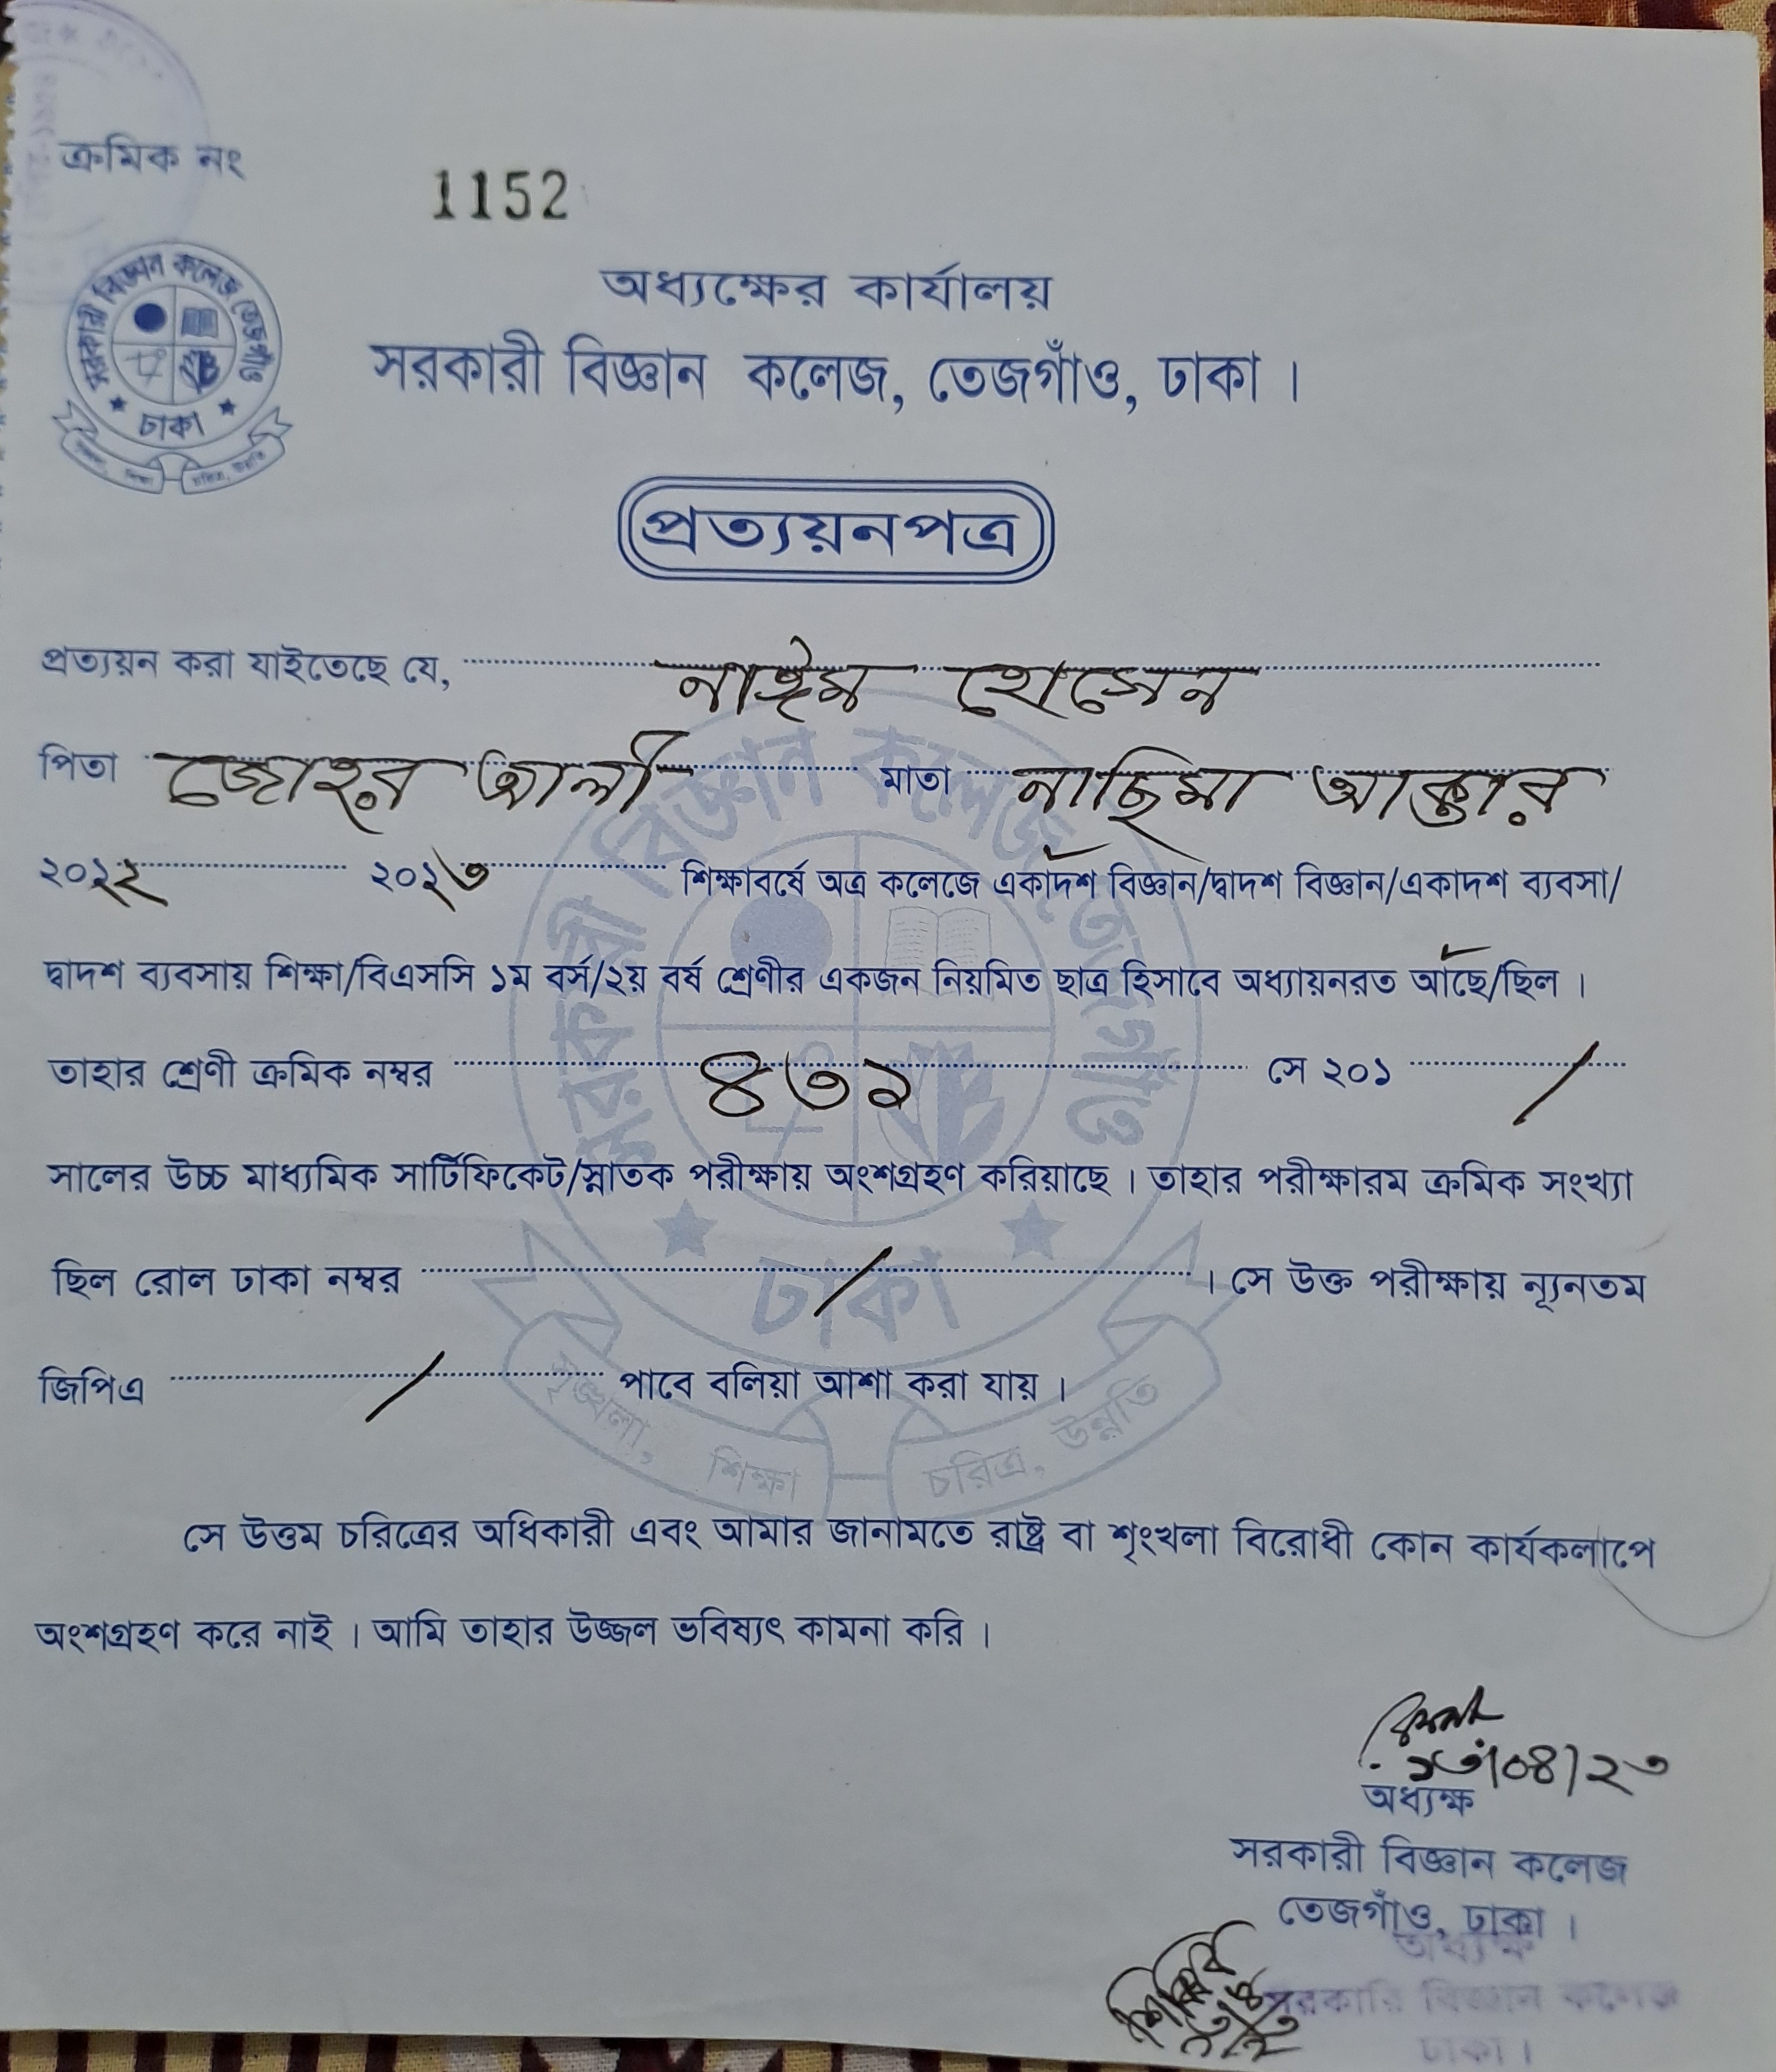 ক্রমিক নং
1152
সরকারী বিজ্ঞান কলেজ তেজগাঁও
ঢাকা
অধ্যক্ষের কার্যালয়
সরকারী বিজ্ঞান কলেজ, তেজগাঁও, ঢাকা।
প্রত্যয়নপত্র
প্রত্যয়ন করা যাইতেছে যে, নাইম হোসেন
পিতা জোহর আলী মাতা নাছিমা আক্তার
২০২২ ২০২৩ শিক্ষাবর্ষে অত্র কলেজে একাদশ বিজ্ঞান/দ্বাদশ বিজ্ঞান/একাদশ ব্যবসা/
দ্বাদশ ব্যবসায় শিক্ষা/বিএসসি ১ম বর্স/২য় বর্ষ শ্রেণীর একজন নিয়মিত ছাত্র হিসাবে অধ্যায়নরত আছে/ছিল।
তাহার শ্রেণী ক্রমিক নম্বর ৪৩২ সে ২০১ /
সালের উচ্চ মাধ্যমিক সার্টিফিকেট/স্নাতক পরীক্ষায় অংশগ্রহণ করিয়াছে। তাহার পরীক্ষারম ক্রমিক সংখ্যা
ছিল রোল ঢাকা নম্বর / । সে উক্ত পরীক্ষায় ন্যূনতম
জিপিএ / পাবে বলিয়া আশা করা যায়।
সরকারী বিজ্ঞান কলেজ তেজগাঁও
ঢাকা
শৃঙ্খলা, শিক্ষা চরিত্র, উন্নতি
সে উত্তম চরিত্রের অধিকারী এবং আমার জানামতে রাষ্ট্র বা শৃংখলা বিরোধী কোন কার্যকলাপে
অংশগ্রহণ করে নাই। আমি তাহার উজ্জল ভবিষ্যৎ কামনা করি।
অধ্যক্ষ
সরকারী বিজ্ঞান কলেজ
তেজগাঁও, ঢাকা।
অধ্যক্ষ
সরকারি বিজ্ঞান কলেজ
ঢাকা।